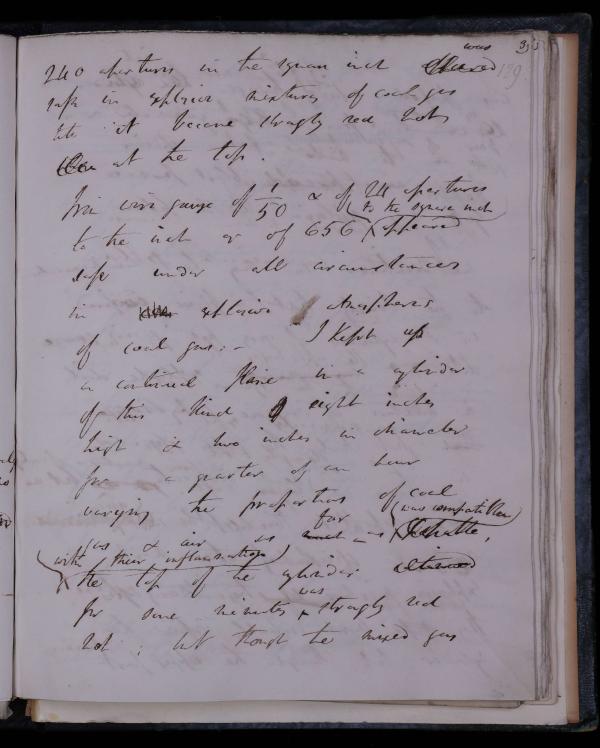 39
189
240 apertures in the square inch was
safe in explosive mixtures of coal gas
till it became strongly red hot
at the top.
Iron wire gauze of 1/50 & of 24 apertures
to the inch or of 656 to the square inch appeared
safe under all circumstances
in explosive Atmospheres
of coal gas:- I kept up
a continued flame in a cylinder
of this kind eight inches
high & two inches in diameter
for a quarter of an hour
varying the proportions of coal
gas & air as far as was compatible
with their inflammation
the top of the cylinder
for some minutes was strongly red
hot; but though the mixed gas